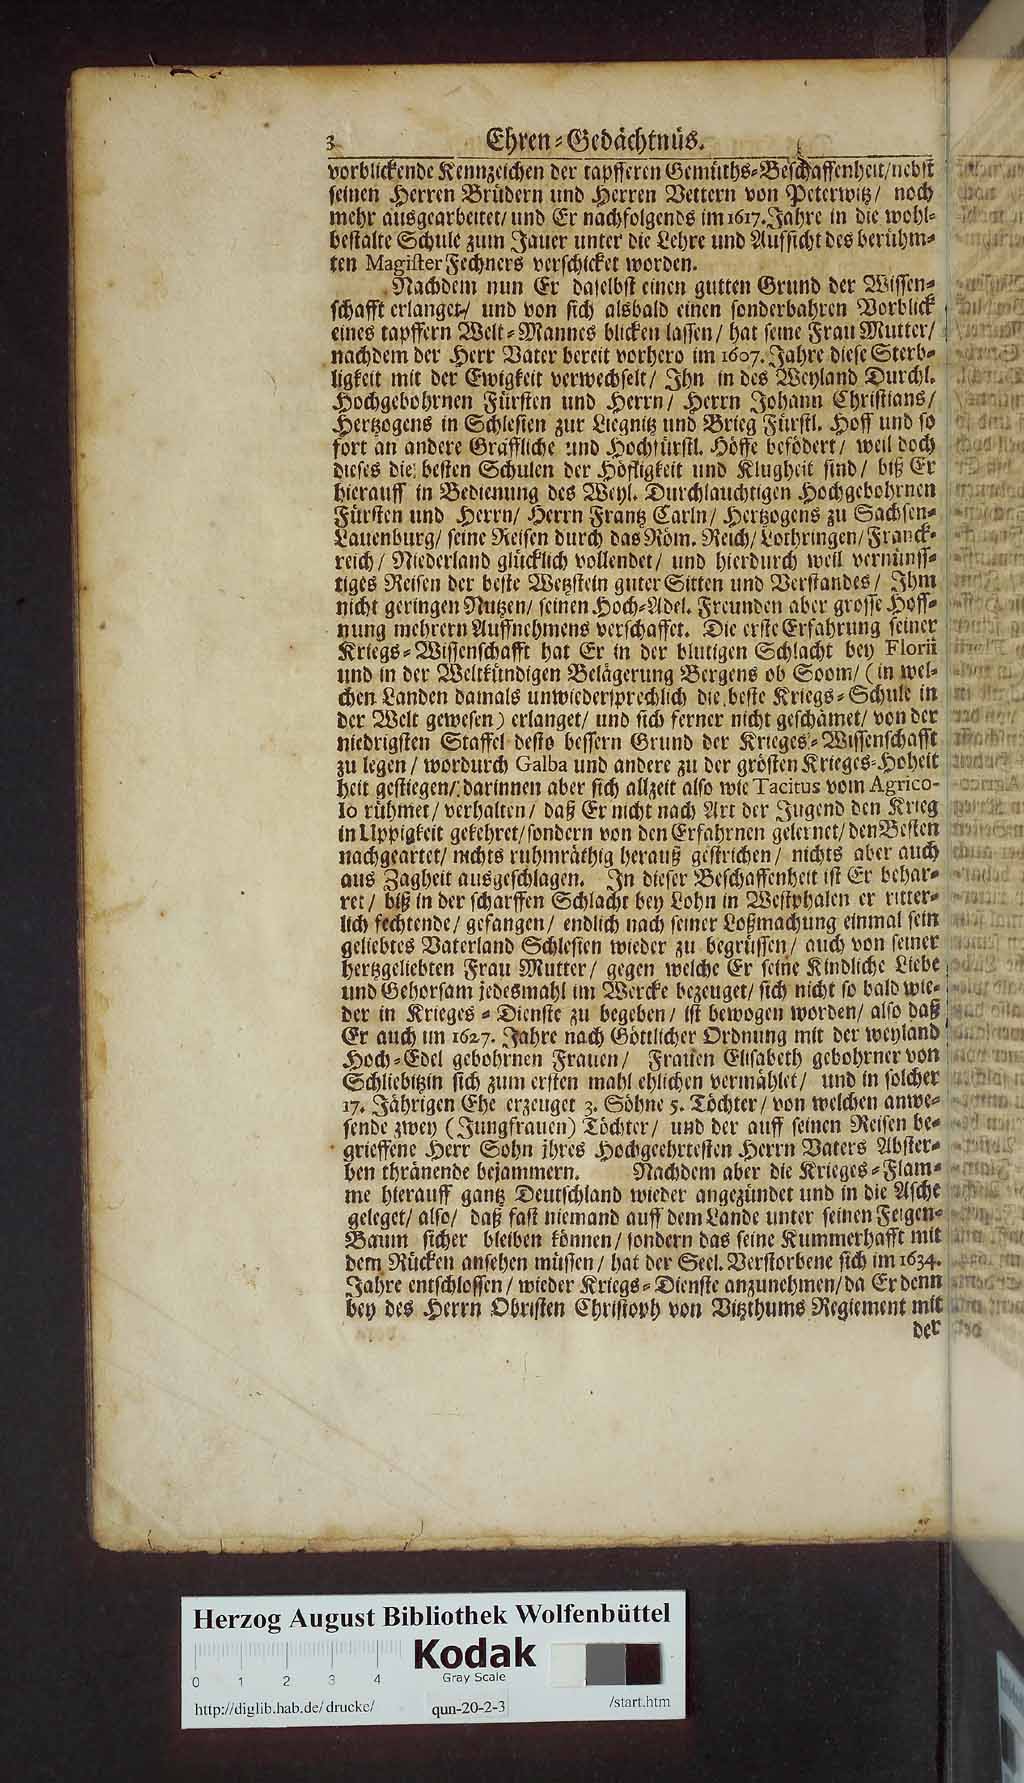 3 Ehren-Gedächtnüs.
vorblickende Kennzeichen der tapfferen Gemüths-Beschaffenheit/nebst
seinen Herren Brüdern und Herren Vettern von Peterwitz/ noch
mehr ausgearbeitet/ und Er nachfolgends im 1617. Jahre in die wohl-
bestalte Schule zum Jauer unter die Lehre und Auffsicht des berühm-
ten Magister Fechners verschicket worden.
Nachdem nun Er daselbst einen gutten Grund der Wissen-
schafft erlanget/ und von sich alsbald einen sonderbahren Vorblick
eines tapffern Welt-Mannes blicken lassen/ hat seine Frau Mutter/
nachdem der Herr Vater bereit vorhero im 1607. Jahre diese Sterb-
ligkeit mit der Ewigkeit verwechselt/ Ihn in des Weyland Durchl.
Hochgebohrnen Fürsten und Herrn/ Herrn Johann Christians/
Hertzogens in Schlesien zur Liegnitz und Brieg Fürstl. Hoff und so
fort an andere Gräffliche und Hochfürstl. Höffe befödert/ weil doch
dieses die besten Schulen der Höfligkeit und Klugheit sind/ biß Er
hierauff in Bedienung des Weyl. Durchlauchtigen Hochgebohrnen
Fürsten und Herrn/ Herrn Frantz Carln/ Hertzogens zu Sachsen-
Lauenburg/ seine Reisen durch das Röm. Reich/ Lothringen/ Franck-
reich/ Niederland glücklich vollendet/ und hierdurch weil vernünff-
tiges Reisen der beste Wetzstein guter Sitten und Verstandes/ Ihm
nicht geringen Nutzen/ seinen Hoch-Adel. Freunden aber grosse Hoff-
nung mehrern Auffnehmens verschaffet. Die erste Erfahrung seiner
Kriegs-Wissenschafft hat Er in der blutigen Schlacht bey Florii
und in der Weltkündigen Belägerung Bergens ob Soom/ (in wel-
chen Landen damals unwiedersprechlich die beste Kriegs-Schule in
der Welt gewesen) erlanget/ und sich ferner nicht geschämet/ von der
niedrigsten Staffel desto bessern Grund der Krieges-Wissenschafft
zu legen/ wordurch Galba und andere zu der grösten Krieges-Hoheit
heit gestiegen/ darinnen aber sich allzeit also wie Tacitus vom Agrico-
lo rühmet/ verhalten/ daß Er nicht nach Art der Jugend den Krieg
in Uppigkeit gekehret/ sondern von den Erfahrnen gelernet/ den Besten
nachgeartet/ nichts ruhmräthig herauß gestrichen/ nichts aber auch
aus Zagheit ausgeschlagen. In dieser Beschaffenheit ist Er behar-
ret/ biß in der scharffen Schlacht bey Lohn in Westphalen er ritter-
lich fechtende/ gefangen/ endlich nach seiner Loßmachung einmal sein
geliebtes Vaterland Schlesien wieder zu begrüssen/ auch von seiner
hertzgeliebten Frau Mutter/ gegen welche Er seine Kindliche Liebe
und Gehorsam jedesmahl im Wercke bezeuget/ sich nicht so bald wie-
der in Krieges-Dienste zu begeben/ ist bewogen worden/ also daß
Er auch im 1627. Jahre nach Göttlicher Ordnung mit der weyland
Hoch-Edel gebohrnen Frauen/ Frauen Elisabeth gebohrner von
Schliebitzin sich zum ersten mahl ehlichen vermählet/ und in solcher
17. Jährigen Ehe erzeuget 3. Söhne 5. Töchter/ von welchen anwe-
sende zwey (Jungfrauen) Töchter/ und der auff seinen Reisen be-
grieffene Herr Sohn jhres Hochgeehrtesten Herrn Vaters Abster-
ben thränende bejammern. Nachdem aber die Krieges-Flam-
me hierauff gantz Deutschland wieder angezündet und in die Asche
geleget/ also/ daß fast niemand auff dem Lande unter seinen Feigen-
Baum sicher bleiben können/ sondern das seine Kummerhafft mit
dem Rücken ansehen müssen/ hat der Seel. Verstorbene sich im 1634.
Jahre entschlossen/ wieder Kriegs-Dienste anzunehmen/ da Er denn
bey des Herrn Obristen Christoph von Vitzthums Regiement mit
der
Herzog August Bibliothek Wolfenbüttel
Kodak
Gray Scale
0 1 2 3 4
http://diglib.hab.de/drucke/ qun-20-2-3 /start.htm